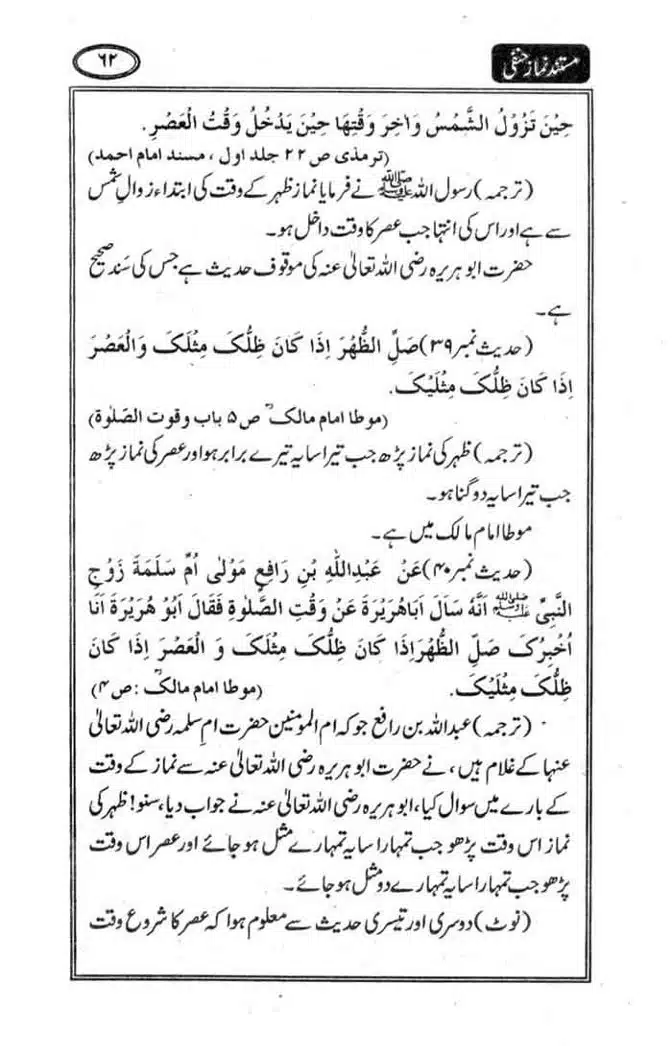 مستند نماز حنفی
۶۲
حِیْنَ تَزُوْلُ الشَّمْسُ وَاٰخِرَ وَقْتِهَا حِیْنَ یَدْخُلُ وَقْتُ الْعَصْرِ.
(ترمذی ص ۲۲ جلد اول ، مسند امام احمد)
(ترجمہ) رسول اللہ ﷺ نے فرمایا نماز ظہر کے وقت کی ابتداء زوالِ شمس
سے ہے اور اس کی انتہا جب عصر کا وقت داخل ہو۔
حضرت ابو ہریرہ رضی اللہ تعالیٰ عنہ کی موقوف حدیث ہے جس کی سَند صحیح
ہے۔
(حدیث نمبر ۳۹) صَلِّ الظُّهْرَ اِذَا كَانَ ظِلُّکَ مِثْلَکَ وَالْعَصْرَ
اِذَا كَانَ ظِلُّکَ مِثْلَیْکَ.
(موطا امام مالکؒ ص ۵ باب وقوت الصلوٰة)
(ترجمہ) ظہر کی نماز پڑھ جب تیرا سایہ تیرے برابر ہو اور عصر کی نماز پڑھ
جب تیرا سایہ دو گنا ہو۔
موطا امام مالک میں ہے۔
(حدیث نمبر ۴۰) عَنْ عَبْدِاللّٰهِ بْنِ رَافِعٍ مَوْلٰی اُمِّ سَلَمَةَ زَوْجِ
النَّبِیِّ ﷺ اَنَّهٗ سَاَلَ اَبَاهُرَیْرَةَ عَنْ وَقْتِ الصَّلٰوةِ فَقَالَ اَبُوْ هُرَیْرَةَ اَنَا
اُخْبِرُکَ صَلِّ الظُّهْرَ اِذَا كَانَ ظِلُّکَ مِثْلَکَ وَ الْعَصْرَ اِذَا كَانَ
ظِلُّکَ مِثْلَیْکَ. (موطا امام مالکؒ : ص ۴)
(ترجمہ) عبداللہ بن رافع جو کہ ام المومنین حضرت امِ سلمہ رضی اللہ تعالیٰ
عنہا کے غلام ہیں، نے حضرت ابو ہریرہ رضی اللہ تعالیٰ عنہ سے نماز کے وقت
کے بارے میں سوال کیا، ابو ہریرہ رضی اللہ تعالیٰ عنہ نے جواب دیا، سنو! ظہر کی
نماز اس وقت پڑھو جب تمہارا سایہ تمہارے مثل ہو جائے اور عصر اس وقت
پڑھو جب تمہارا سایہ تمہارے دو مثل ہو جائے۔
(نوٹ) دوسری اور تیسری حدیث سے معلوم ہوا کہ عصر کا شروع وقت